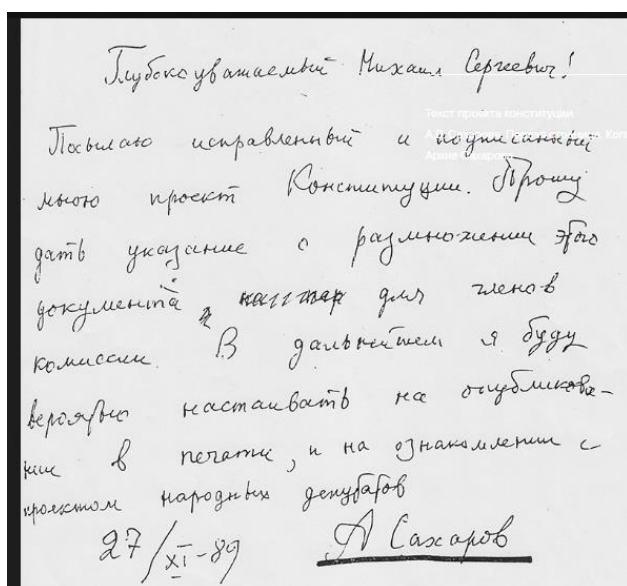 Глубокоуважаемый Михаил Сергеевич!
Текст проекта конституции
Посылаю исправленный и подписанный
мною проект Конституции. Прошу
дать указание о размножении этого
документа для членов
комиссии. В дальнейшем я буду
вероятно настаивать на опубликова-
нии в печати, и на ознакомлении с
проектом народных депутатов
27/XI-89 А Сахаров